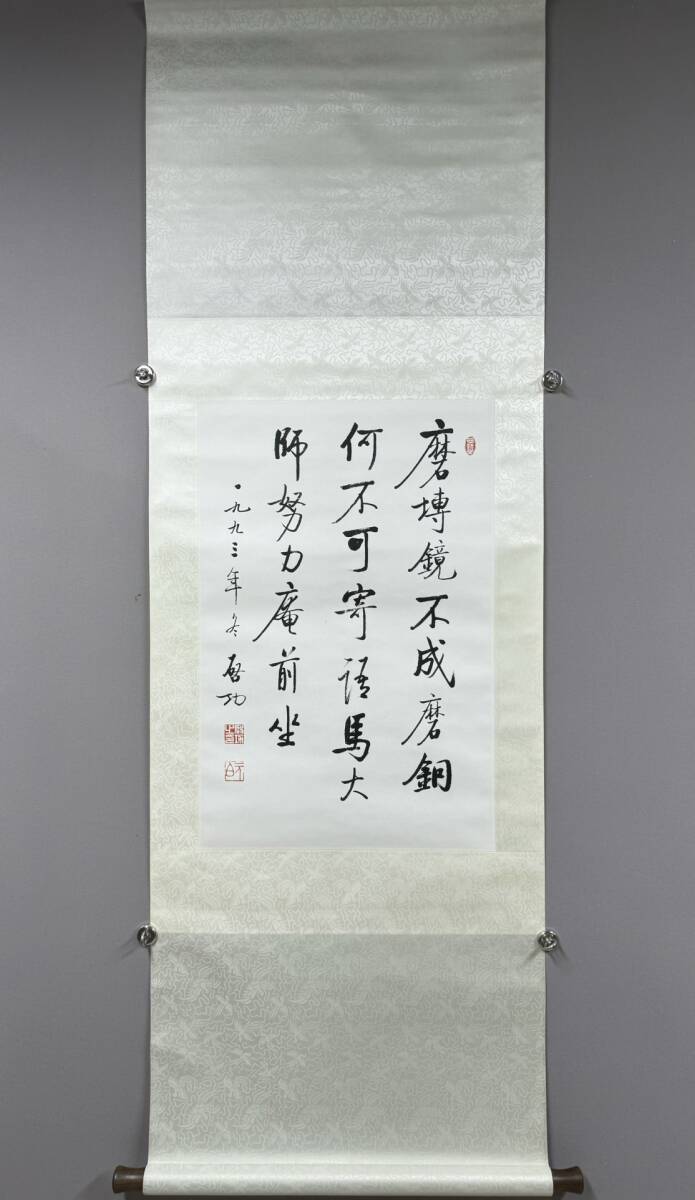 磨塼鏡不成磨銅
何不可寄語馬大
師努力庵前坐
一九九三年冬 啓功